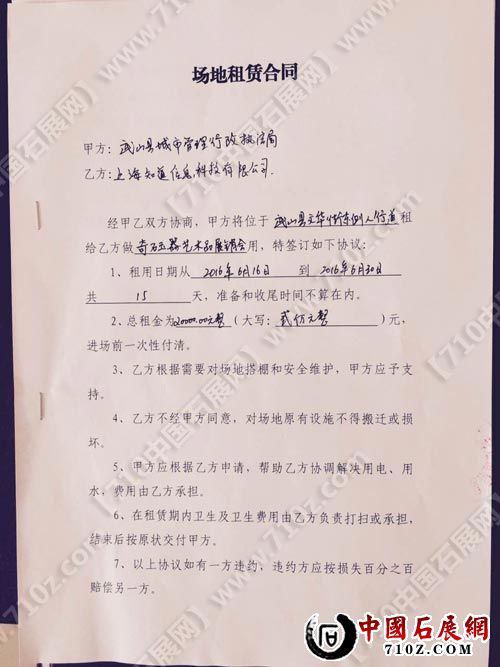 场地租赁合同
甲方：武山县城市管理行政执法局
乙方：上海知道信息科技有限公司.
经甲乙双方协商，甲方将位于 武山县文华街东侧人行道 租
给乙方做 奇石玉器艺术品展销会 用，特签订如下协议：
1、租用日期从 2016年6月16日 到 2016年6月30日
共 15 天，准备和收尾时间不算在内。
2、总租金为20000.00元整（大写：贰万元整）元，
进场前一次性付清。
3、乙方根据需要对场地搭棚和安全维护，甲方应予支
持。
4、乙方不经甲方同意，对场地原有设施不得搬迁或损
坏。
5、甲方应根据乙方申请，帮助乙方协调解决用电、用
水，费用由乙方承担。
6、在租赁期内卫生及卫生费用由乙方负责打扫或承担，
结束后按原状交付甲方。
7、以上协议如有一方违约，违约方应按损失百分之百
赔偿另一方。
【710中国石展网】www.710z.com
中國石展網
710Z.COM